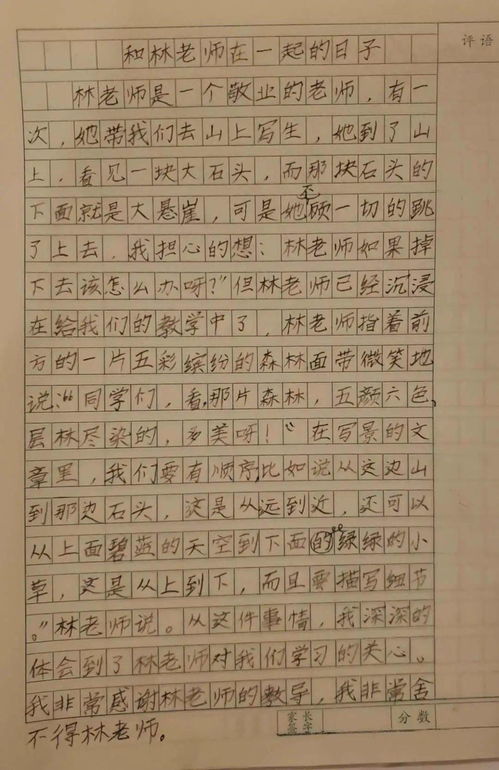 评语
和林老师在一起的日子
林老师是一个敬业的老师，有一
次，她带我们去山上写生，她到了山
上，看见一块大石头，而那块石头的
下面就是大悬崖，可是她不顾一切的跳
了上去，我担心的想：林老师如果掉
下去该怎么办呀？”但林老师已经沉浸
在给我们的教学中了，林老师指着前
方的一片五彩缤纷的森林面带微笑地
说：“同学们，看，那片森林，五颜六色、
层林尽染的，多美呀！“在写景的文
章里，我们要有顺序，比如说从这边山
到那边石头，这是从远到近，还可以
从上面碧蓝的天空到下面的绿绿的小
草，这是从上到下，而且要描写细节
。”林老师说。从这件事情，我深深的
体会到了林老师对我们学习的关心。
我非常感谢林老师的教导，我非常舍
不得林老师。
家长签字
分数